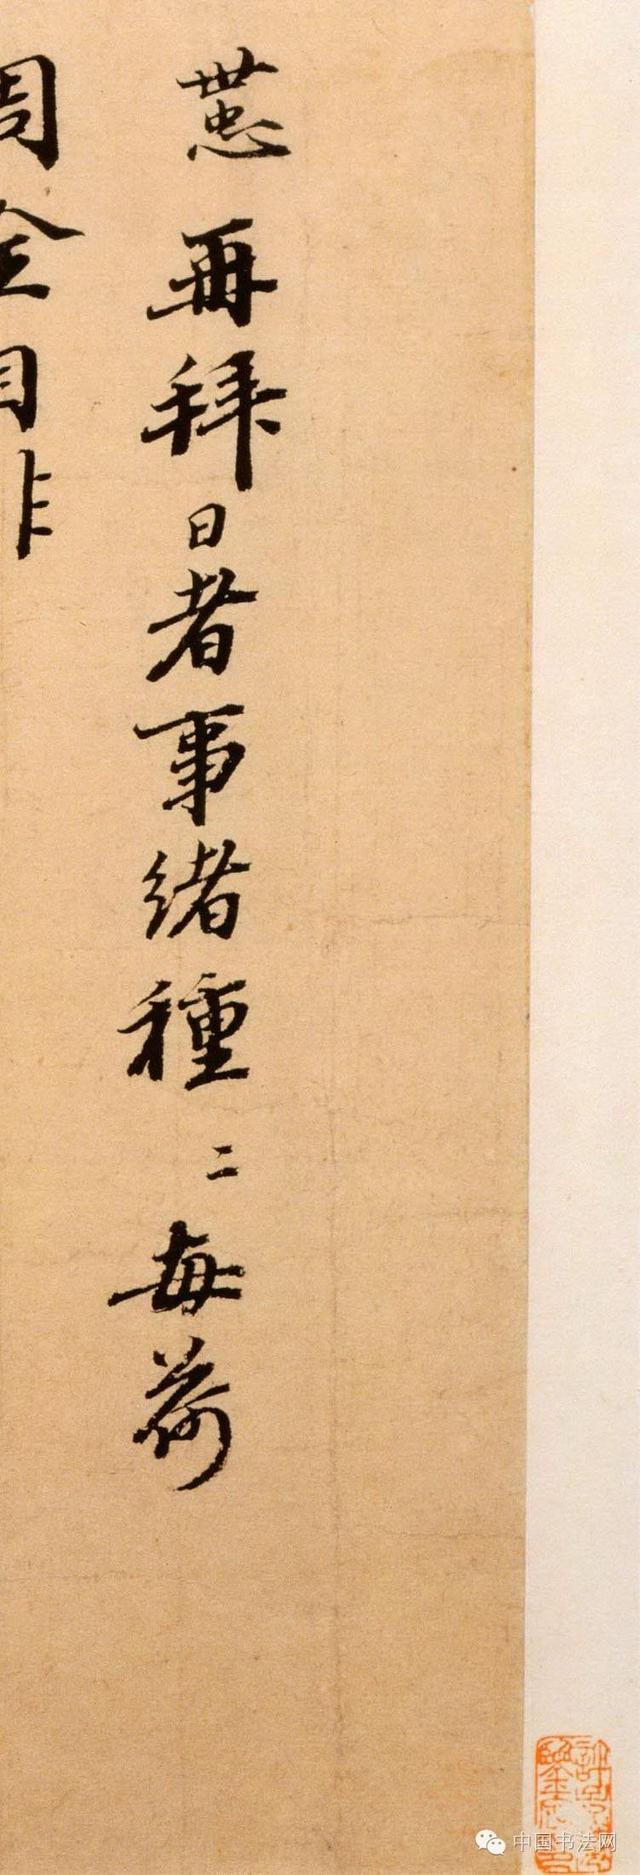 再拜日者事緒種二每荷
周全目非
中国书法网